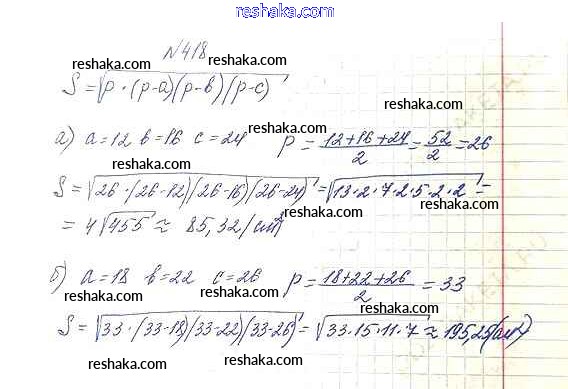 www.reshaka.com
№418
reshaka.com reshaka.com
S = √p·(p-a)(p-b)(p-c)
reshaka.com
а) a=12 b=16 c=24 p = (12+16+24)/2 = 52/2 = 26
reshaka.com reshaka.com
S = √26·(26-12)(26-16)(26-24) = √13·2·7·2·5·2·2 =
reshaka.com
= 4√455 ≈ 85,32 (см²)
reshaka.com
б) a=18 b=22 c=26 p = (18+22+26)/2 = 33
reshaka.com reshaka.com reshaka.com
S = √33·(33-18)(33-22)(33-26) = √33·15·11·7 ≈ 195,25 (см²)
reshaka.com reshaka.com
www.reshaka.com